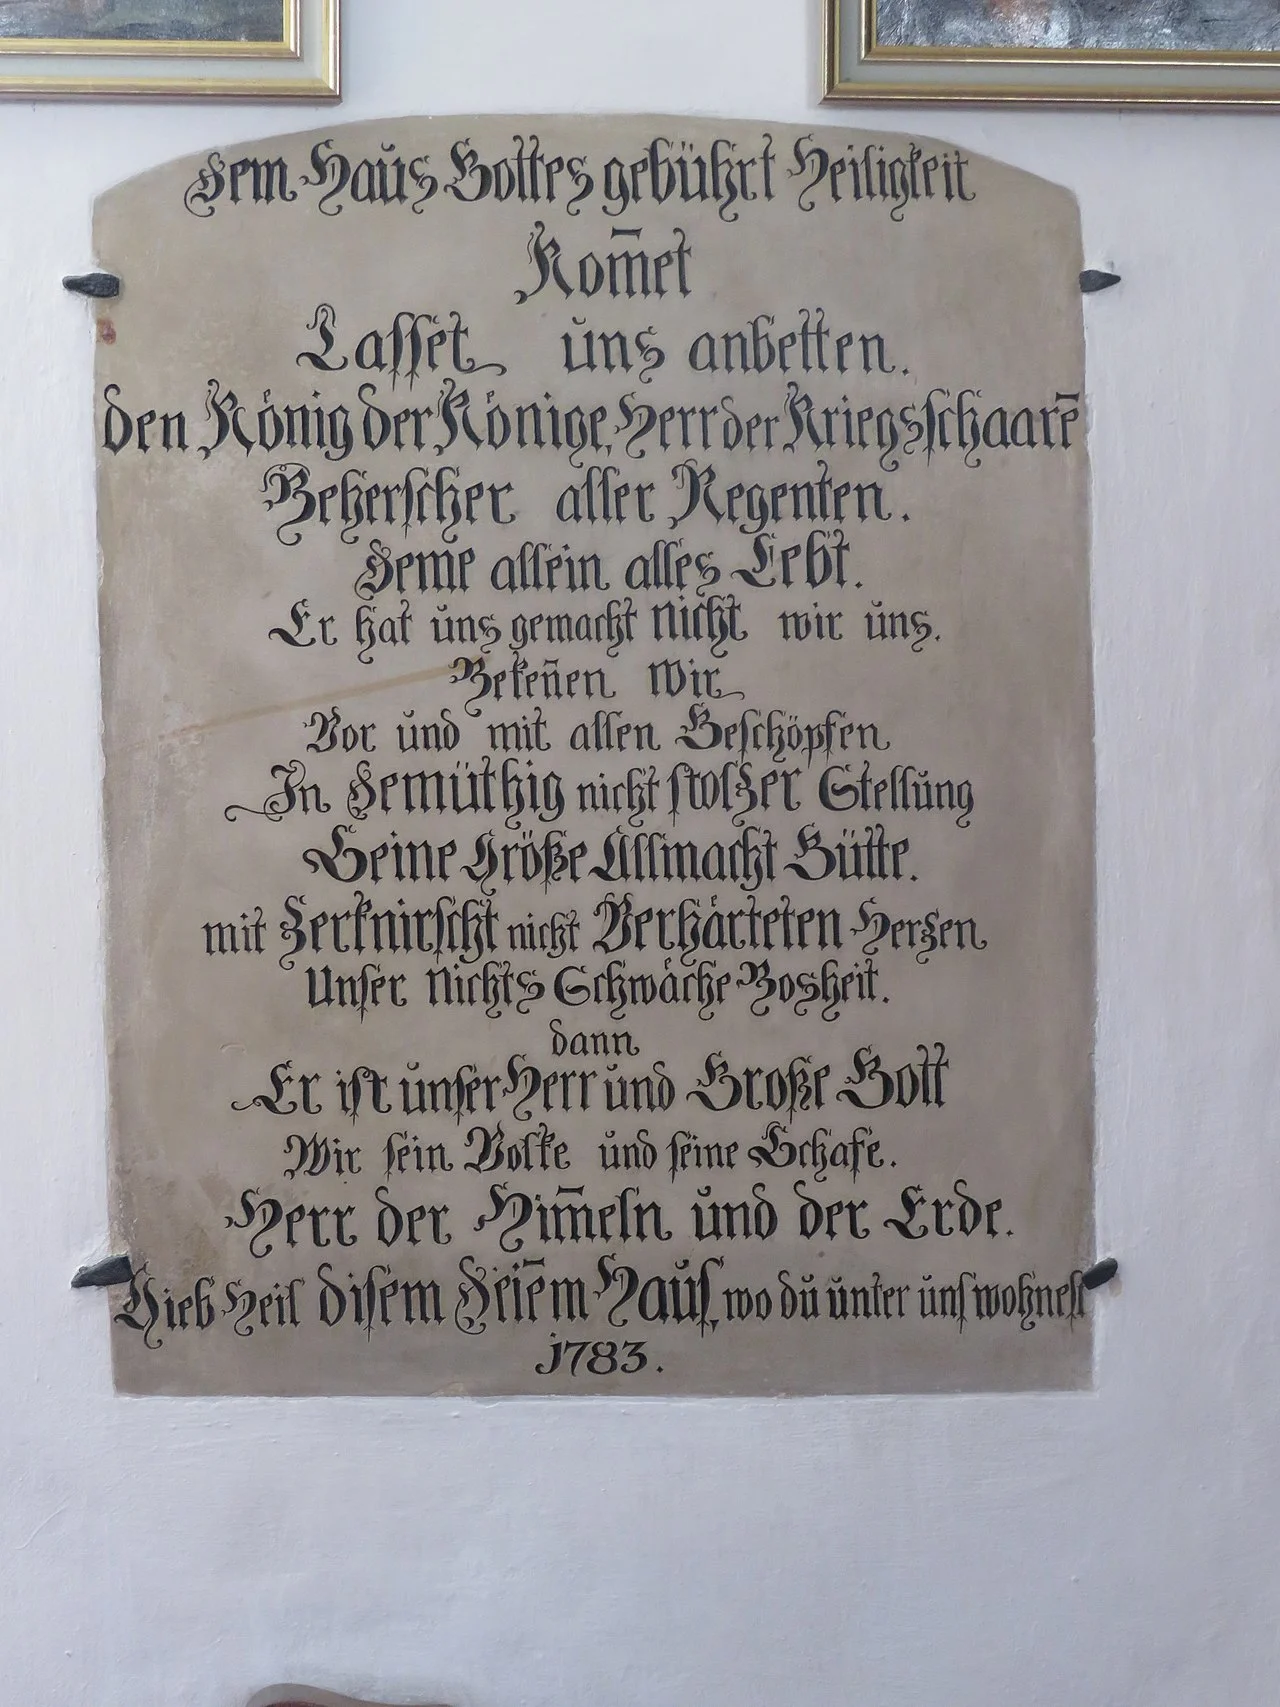 Dem Haus Gottes gebührt Heiligkeit
Kom̄et
Lasset uns anbetten.
den König der Könige, Herr der Kriegsschaarē
Beherscher aller Regenten.
Deme allein alles Lebt.
Er hat uns gemacht nicht wir uns.
Beken̄en Wir
Vor und mit allen Geschöpfen
In Demüthig nicht stolzer Stellung
Seine Größe Allmacht Gütte.
mit Zerknirscht nicht Verhärteten Herzen
Unser Nichts Schwäche Bosheit.
dann
Er ist unser Herr und Große Gott
Wir sein Volke und seine Schafe.
Herr der Him̄eln und der Erde.
Gieb Heil disem Deiēm Haus, wo du unter uns wohnest
1783.